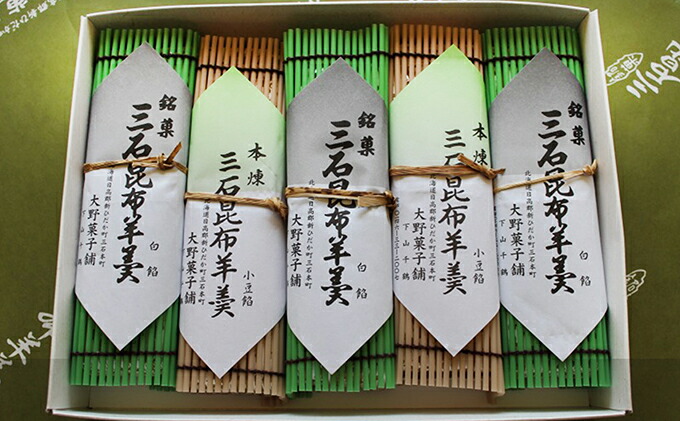 銘菓
三石昆布羊羹
白餡
北海道日高郡新ひだか町三石本町
大野菓子舗
本煉
三石昆布羊羹
小豆餡
北海道日高郡新ひだか町三石本町
大野菓子舗
下山千鶴
銘菓
三石昆布羊羹
白餡
北海道日高郡新ひだか町三石本町
大野菓子舗
本煉
三石昆布羊羹
小豆餡
北海道日高郡新ひだか町三石本町
大野菓子舗
下山千鶴
銘菓
三石昆布羊羹
白餡
北海道日高郡新ひだか町三石本町
大野菓子舗
下山千鶴